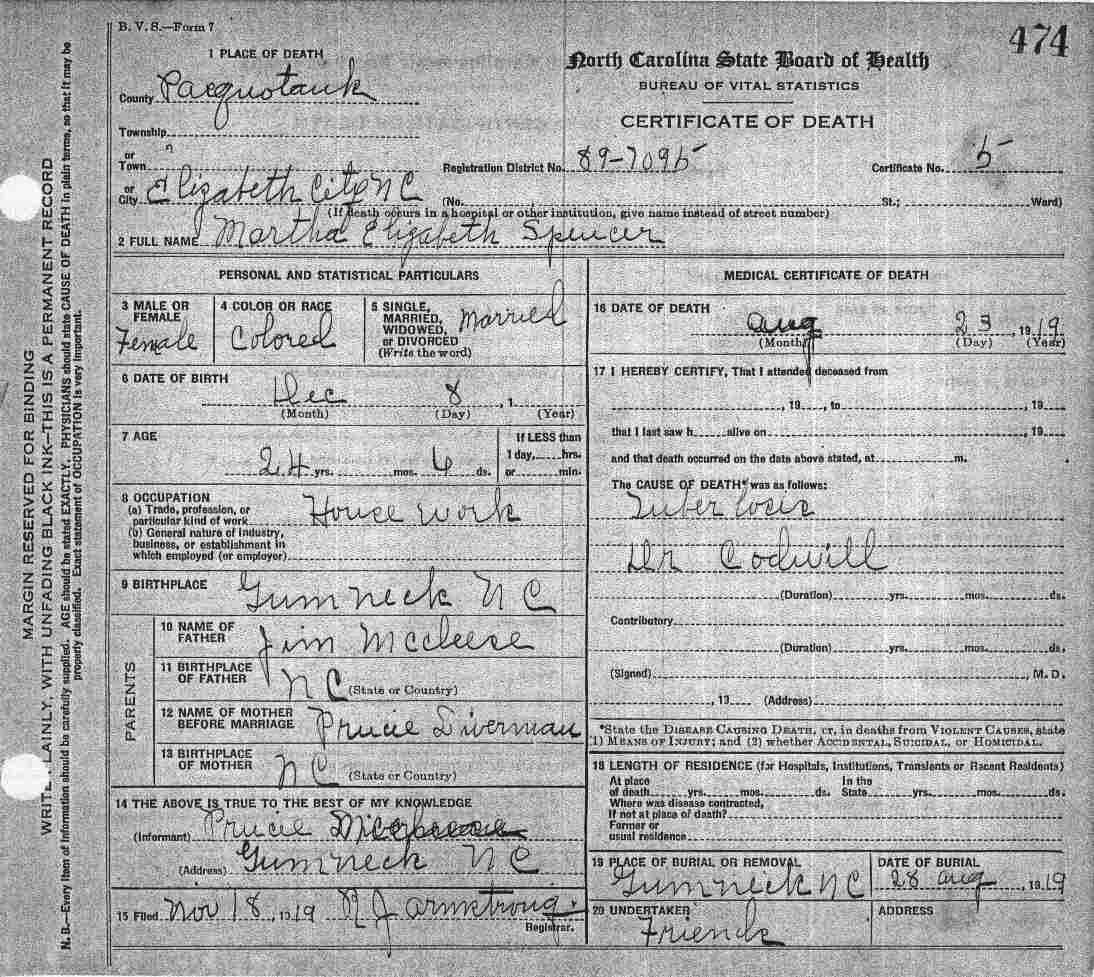 B. V. S.—Form 7
474
1 PLACE OF DEATH
North Carolina State Board of Health
BUREAU OF VITAL STATISTICS
CERTIFICATE OF DEATH
County Pacquotank
Township
or Town
Registration District No. 89-7095
Certificate No. 5
or City Elizabeth City NC (No. St.; Ward)
(If death occurs in a hospital or other institution, give name instead of street number)
2 FULL NAME Martha Elizabeth Spencer
PERSONAL AND STATISTICAL PARTICULARS
3 MALE OR FEMALE
Female
4 COLOR OR RACE
Colored
5 SINGLE, MARRIED, WIDOWED, or DIVORCED
(Write the word)
Married
6 DATE OF BIRTH
Dec 8 , 1
(Month) (Day) (Year)
7 AGE
24 yrs. mos. 6 ds.
If LESS than
1 day, hrs.
or min.
8 OCCUPATION
(a) Trade, profession, or
particular kind of work House work
(b) General nature of Industry,
business, or establishment in
which employed (or employer)
9 BIRTHPLACE
Gumneck NC
PARENTS
10 NAME OF FATHER
Jim Mccleese
11 BIRTHPLACE OF FATHER
NC (State or Country)
12 NAME OF MOTHER BEFORE MARRIAGE
Prucie Diverman
13 BIRTHPLACE OF MOTHER
NC (State or Country)
14 THE ABOVE IS TRUE TO THE BEST OF MY KNOWLEDGE
(Informant) Prucie
(Address) Gumneck NC
15 Filed Nov 18, 1919 R J Armstrong
Registrar.
MEDICAL CERTIFICATE OF DEATH
16 DATE OF DEATH
Aug 23, 1919
(Month) (Day) (Year)
17 I HEREBY CERTIFY, That I attended deceased from
, 19 , to , 19
that I last saw h alive on , 19
and that death occurred on the date above stated, at m.
The CAUSE OF DEATH* was as follows:
Tuberlosis
Dr Codwill
(Duration) yrs. mos. ds.
Contributory
(Duration) yrs. mos. ds.
(Signed) , M. D.
, 19 (Address)
*State the DISEASE CAUSING DEATH, or, in deaths from VIOLENT CAUSES, state
(1) MEANS OF INJURY; and (2) whether ACCIDENTAL, SUICIDAL, or HOMICIDAL.
18 LENGTH OF RESIDENCE (for Hospitals, Institutions, Transients or Recent Residents)
At place of death yrs. mos. ds. In the State yrs. mos. ds.
Where was disease contracted,
If not at place of death?
Former or
usual residence
19 PLACE OF BURIAL OR REMOVAL
Gumneck NC
DATE OF BURIAL
28 Aug, 1919
20 UNDERTAKER
Friends
ADDRESS
MARGIN RESERVED FOR BINDING
WRITE PLAINLY, WITH UNFADING BLACK INK—THIS IS A PERMANENT RECORD
N. B.—Every item of information should be carefully supplied. AGE should be stated EXACTLY. PHYSICIANS should state CAUSE OF DEATH in plain terms, so that it may be
properly classified. Exact statement of OCCUPATION is very important.